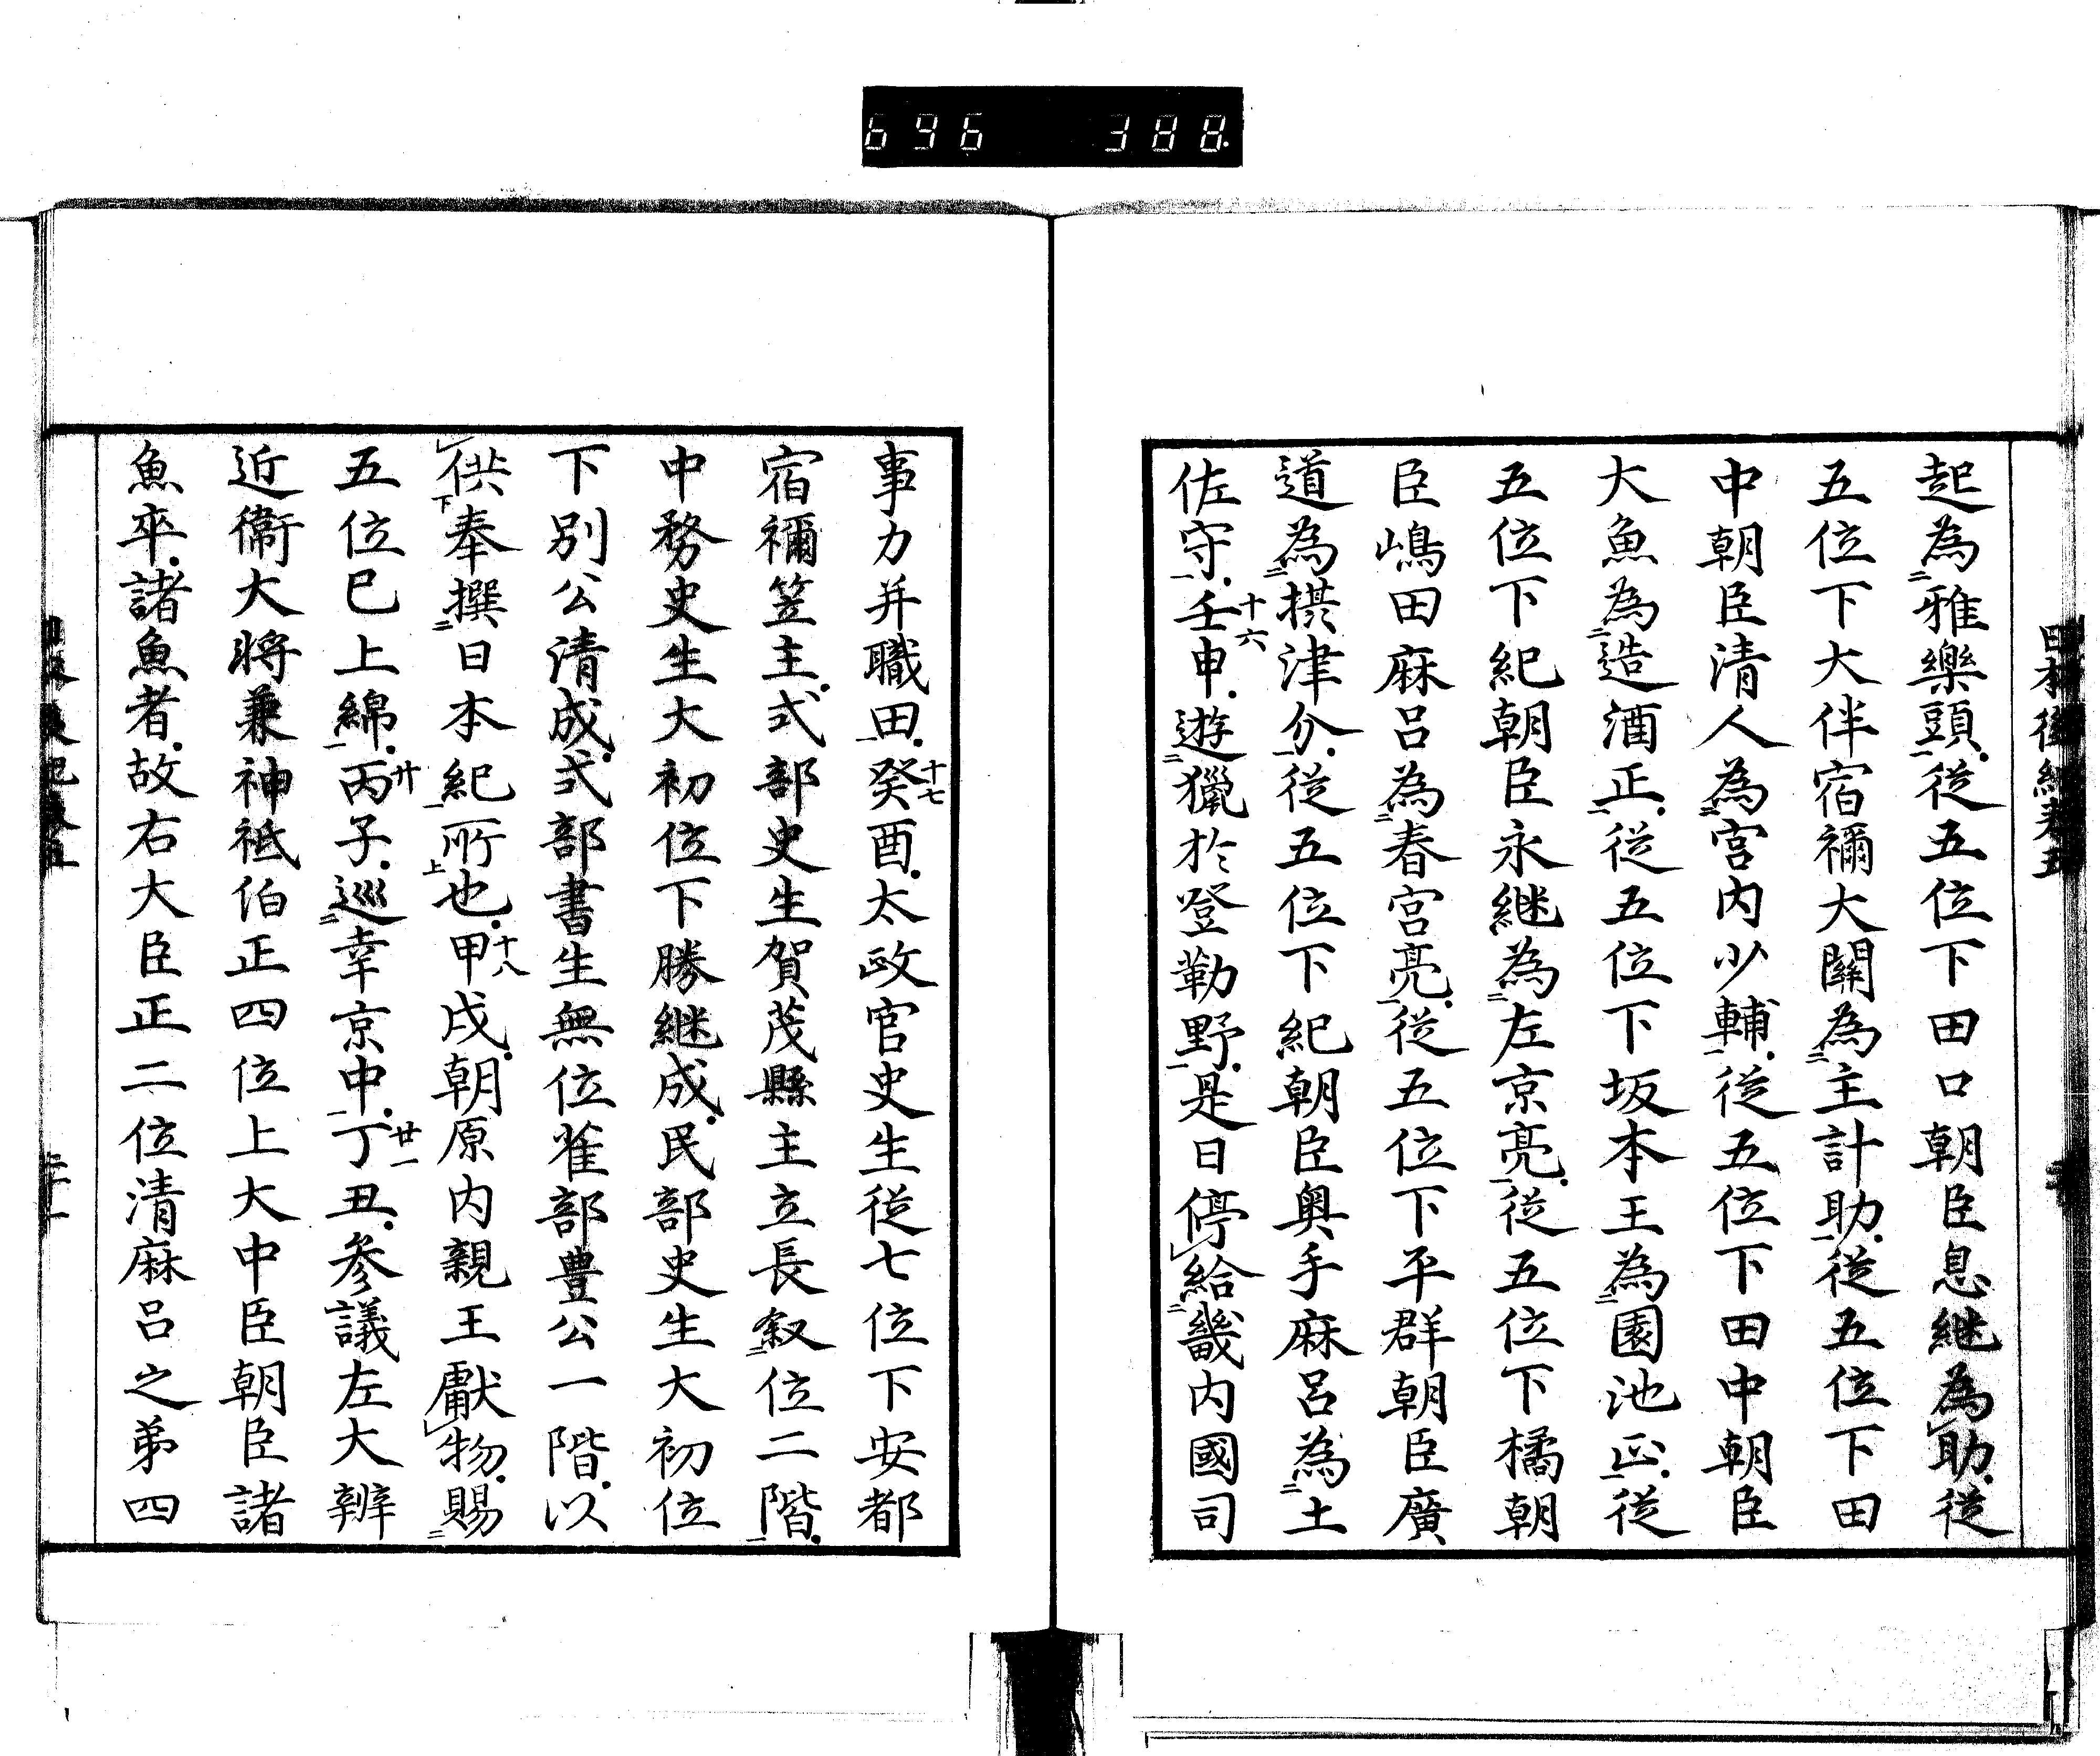 696 388
日本後紀卷五
起為雅樂頭從五位下田口朝臣息継為助從
五位下大伴宿禰大關為主計助從五位下田
中朝臣清人為宮内少輔從五位下田中朝臣
大魚為造酒正從五位下坂本王為園池正從
五位下紀朝臣永継為左京亮從五位下橘朝
臣嶋田麻呂為春宮亮從五位下平群朝臣廣
道為摂津介從五位下紀朝臣奥手麻呂為土
佐守十六壬申遊獵於登勒野是日停給畿内國司
事力并職田十七癸酉太政官史生從七位下安都
宿禰笠主式部史生賀茂縣主立長叙位二階
中務史生大初位下勝継成民部史生大初位
下別公清成式部書生無位雀部豊公一階以
供奉撰日本紀所也十八甲戌朝原内親王獻物賜
五位已上綿廿丙子巡幸京中廿一丁丑参議左大辨
近衞大将兼神祇伯正四位上大中臣朝臣諸
魚卒諸魚者故右大臣正二位清麻呂之弟四